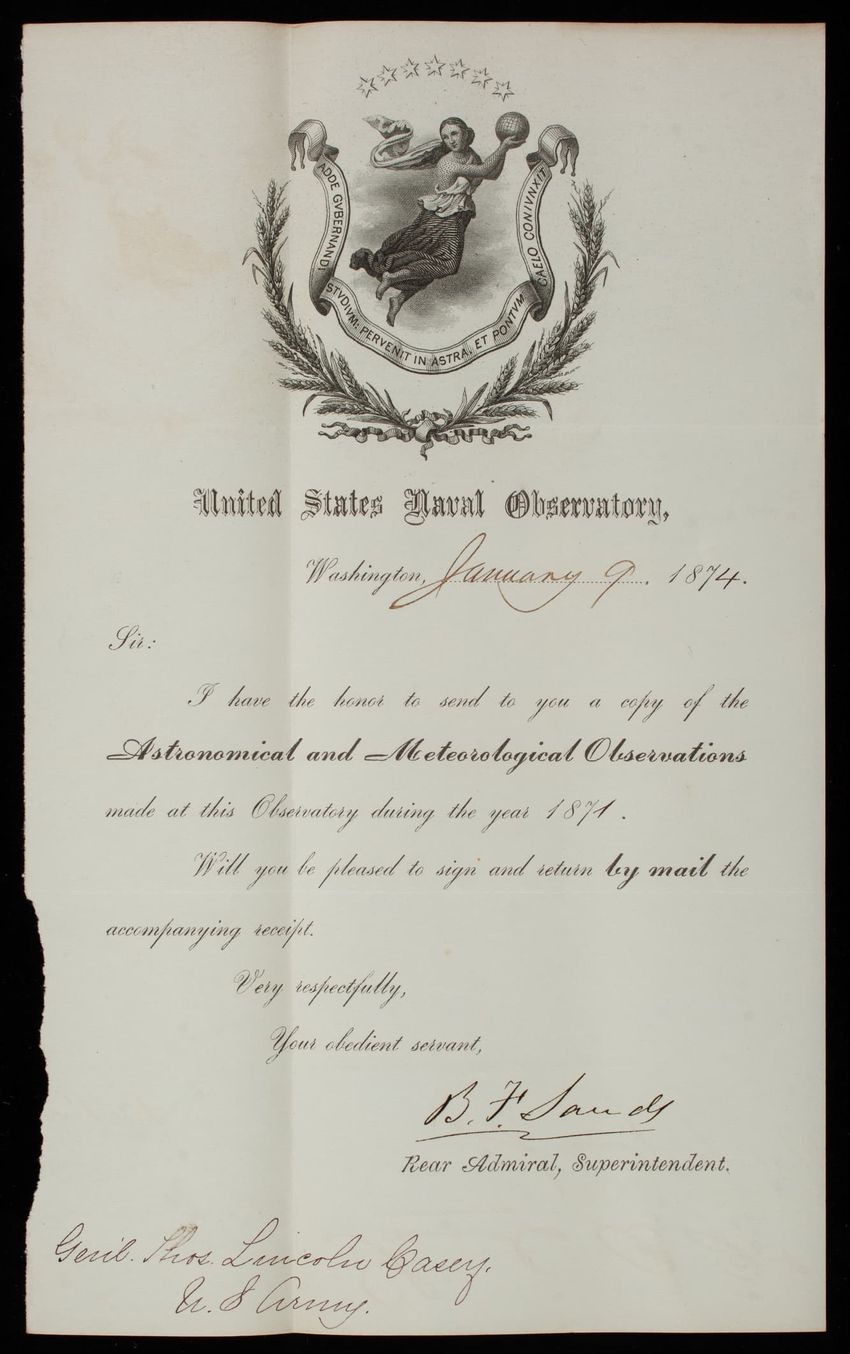 ADDE GVBERNANDI STVDIVM: PERVENIT IN ASTRA, ET PONTVM CAELO CONIVNXIT
United States Naval Observatory,
Washington, January 9. 1874.
Sir:
I have the honor to send to you a copy of the
Astronomical and Meteorological Observations
made at this Observatory during the year 1871.
Will you be pleased to sign and return by mail the
accompanying receipt.
Very respectfully,
Your obedient servant,
B. F. Sands
Rear Admiral, Superintendent.
Genl. Thos. Lincoln Casey.
U. S Army.